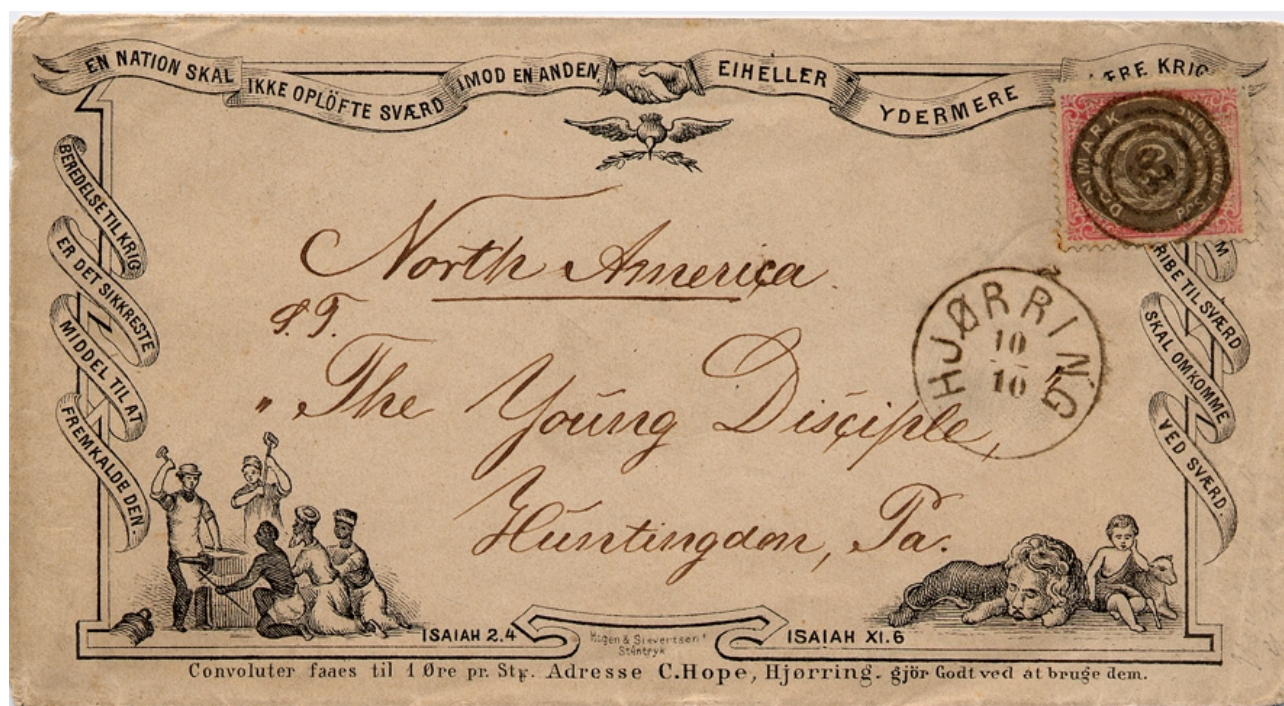 EN NATION SKAL IKKE OPLÖFTE SVÆRD IMOD EN ANDEN, EIHELLER YDERMERE LÆRE KRIG
BEREDELSE TIL KRIG
ER DET SIKKRESTE
MIDDEL TIL AT
FREMKALDE DEN.
DANMARK
8
HJØRRING
10
10
RIBE TIL SVÆRD
SKAL OMKOMME
VED SVÆRD.
North America.
S. T.
"The Young Disciple,
Huntingdon, Pa.
ISAIAH 2.4
Hagen & Sievertsen's
Sténtryk
ISAIAH XI.6
Convoluter faaes til 1 Øre pr. Stk. Adresse C. Hope, Hjørring. gjör Godt ved at bruge dem.